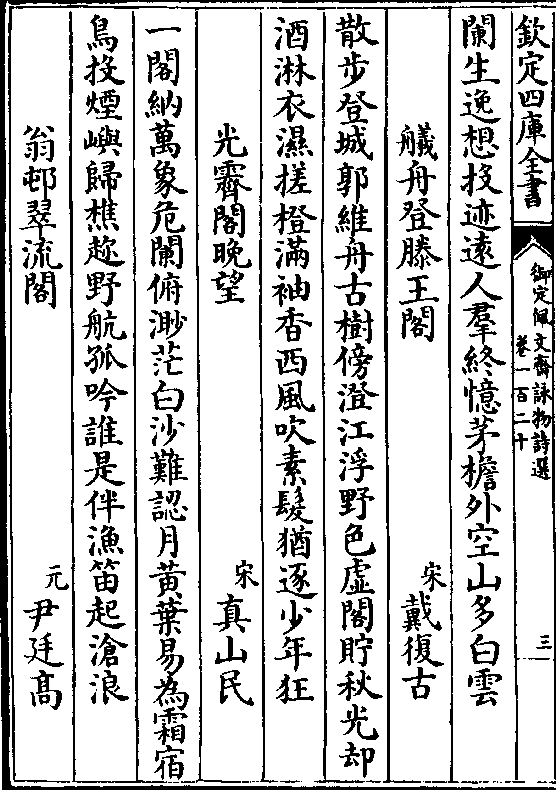 欽定四庫全書
御定佩文齋詠物詩選
卷一百二十
三
闌生逸想投迹遠人羣終憶茅檐外空山多白雲
艤舟登滕王閣 宋 戴復古
散步登城郭維舟古樹傍澄江浮野色虛閣貯秋光却
酒淋衣濕搓橙滿袖香西風吹素髮猶逐少年狂
光霽閣晚望 宋 真山民
一閣納萬象危闌俯渺茫白沙難認月黃葉易為霜宿
鳥投煙嶼歸樵趂野航孤吟誰是伴漁笛起滄浪
翁邨翠流閣 元 尹廷高